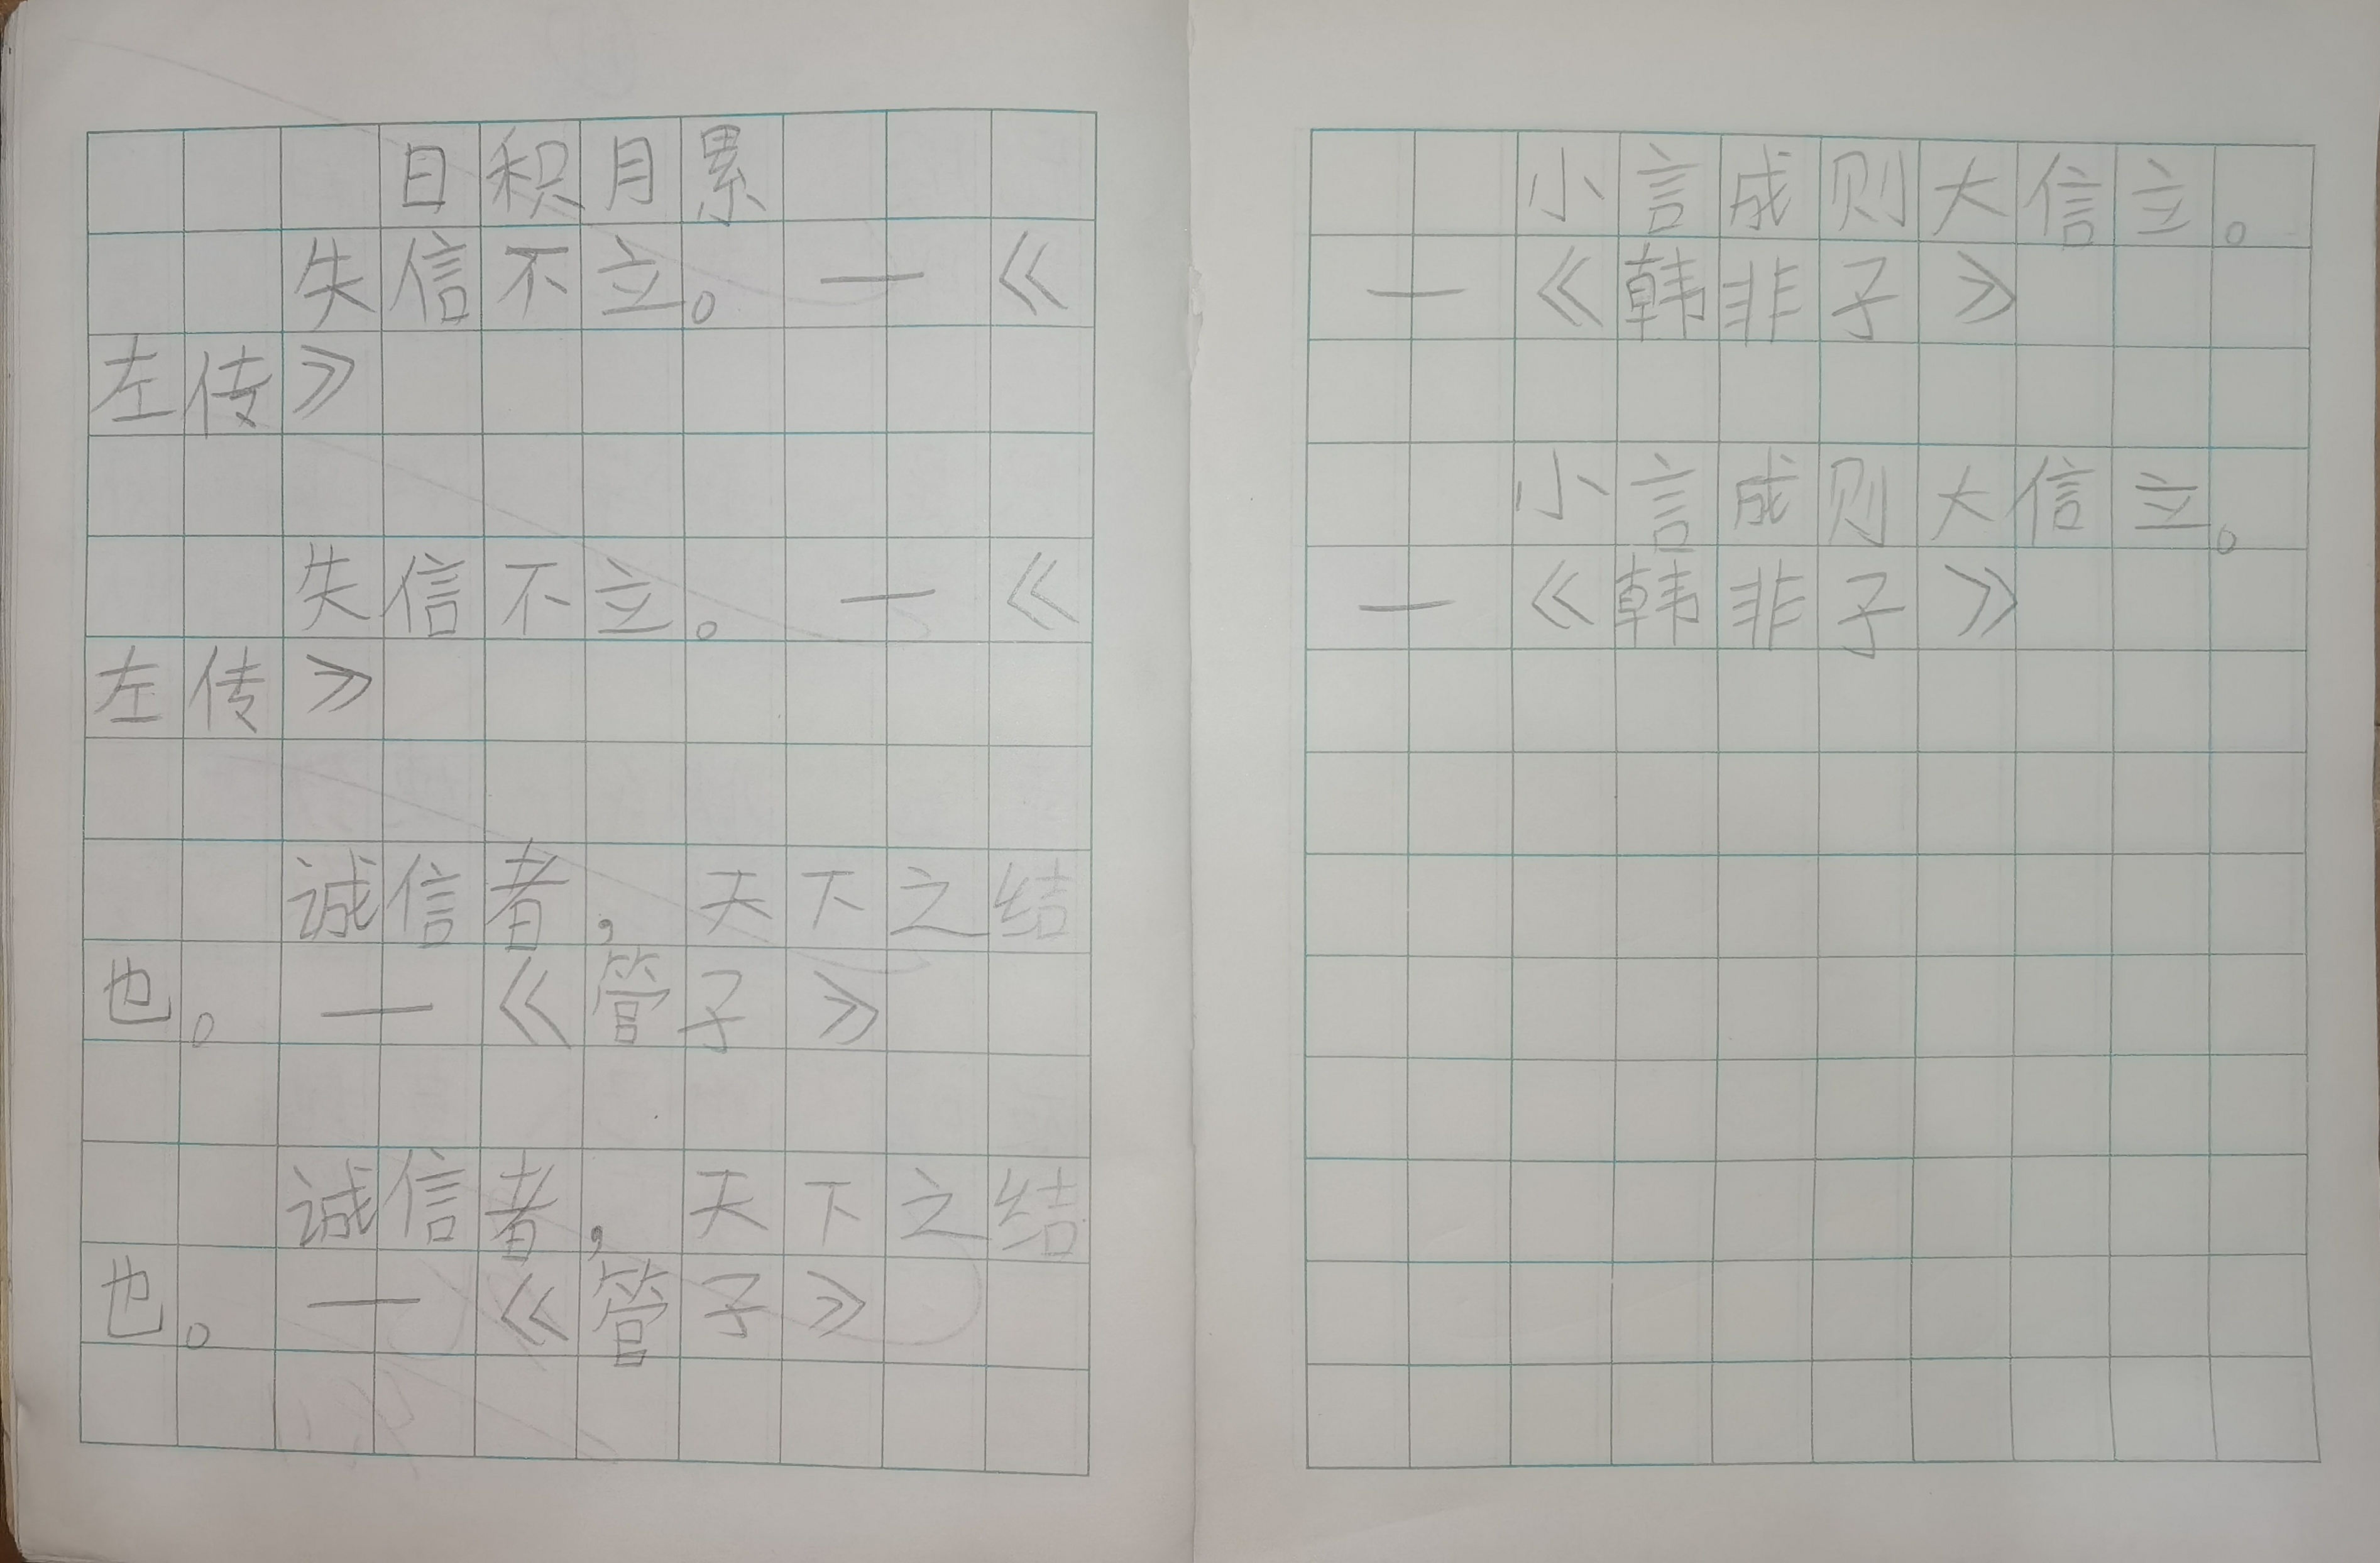 日积月累
失信不立。—《
左传》
失信不立。—《
左传》
诚信者，天下之结
也。—《管子》
诚信者，天下之结
也。—《管子》
小言成则大信立。
—《韩非子》
小言成则大信立。
—《韩非子》